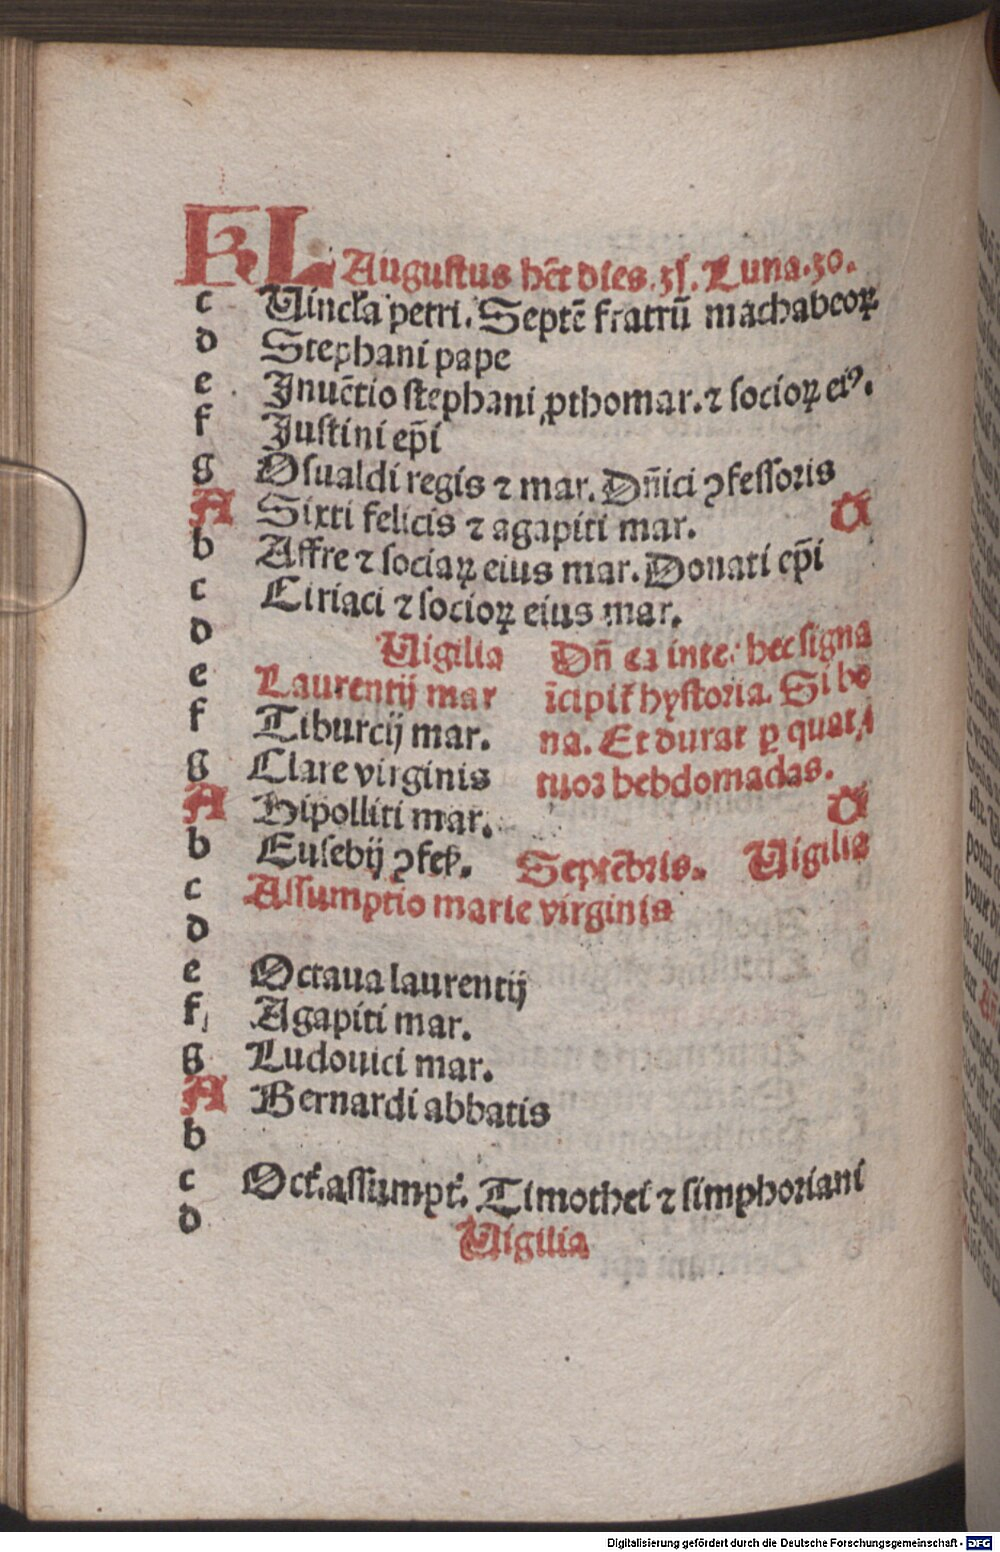 KL Augustus hēt dies .3ſ. Luna .30.
c Uincĺa petri. Septē fratrū machabeoꝝ
d Stephani pape
e Inuētio ſtephani ꝓthomar. ⁊ socioꝝ eiꝰ.
f Juſtini ep̄i
g Osualdi regis ⁊ mar. Dn̄ici ꝯfeſſoris
A Sixti felicis ⁊ agapiti mar. D
b Affre ⁊ sociaꝝ eius mar. Donati ep̄i
c Ciriaci ⁊ socioꝝ eius mar.
d Uigilia Dn̄ ca inter hec signa
e Laurentij mar īcipit̉ hyſtoria. Si bo
f Tiburcij mar. na. Et durat ꝑ quat
g Clare virginis tuoꝛ hebdomadas.
A Hipolliti mar. D
b Eusebij ꝯfeſ. Septēbris. Uigilia
c Aſſumptio marie virginis
d
e Octaua laurentij
f Agapiti mar.
g Ludouici mar.
A Bernardi abbatis
b
c Oct̉. aſſumpt̉. Timothei ⁊ simphoriani
d Uigilia
Digitalisierung gefördert durch die Deutsche Forschungsgemeinschaft - DFG